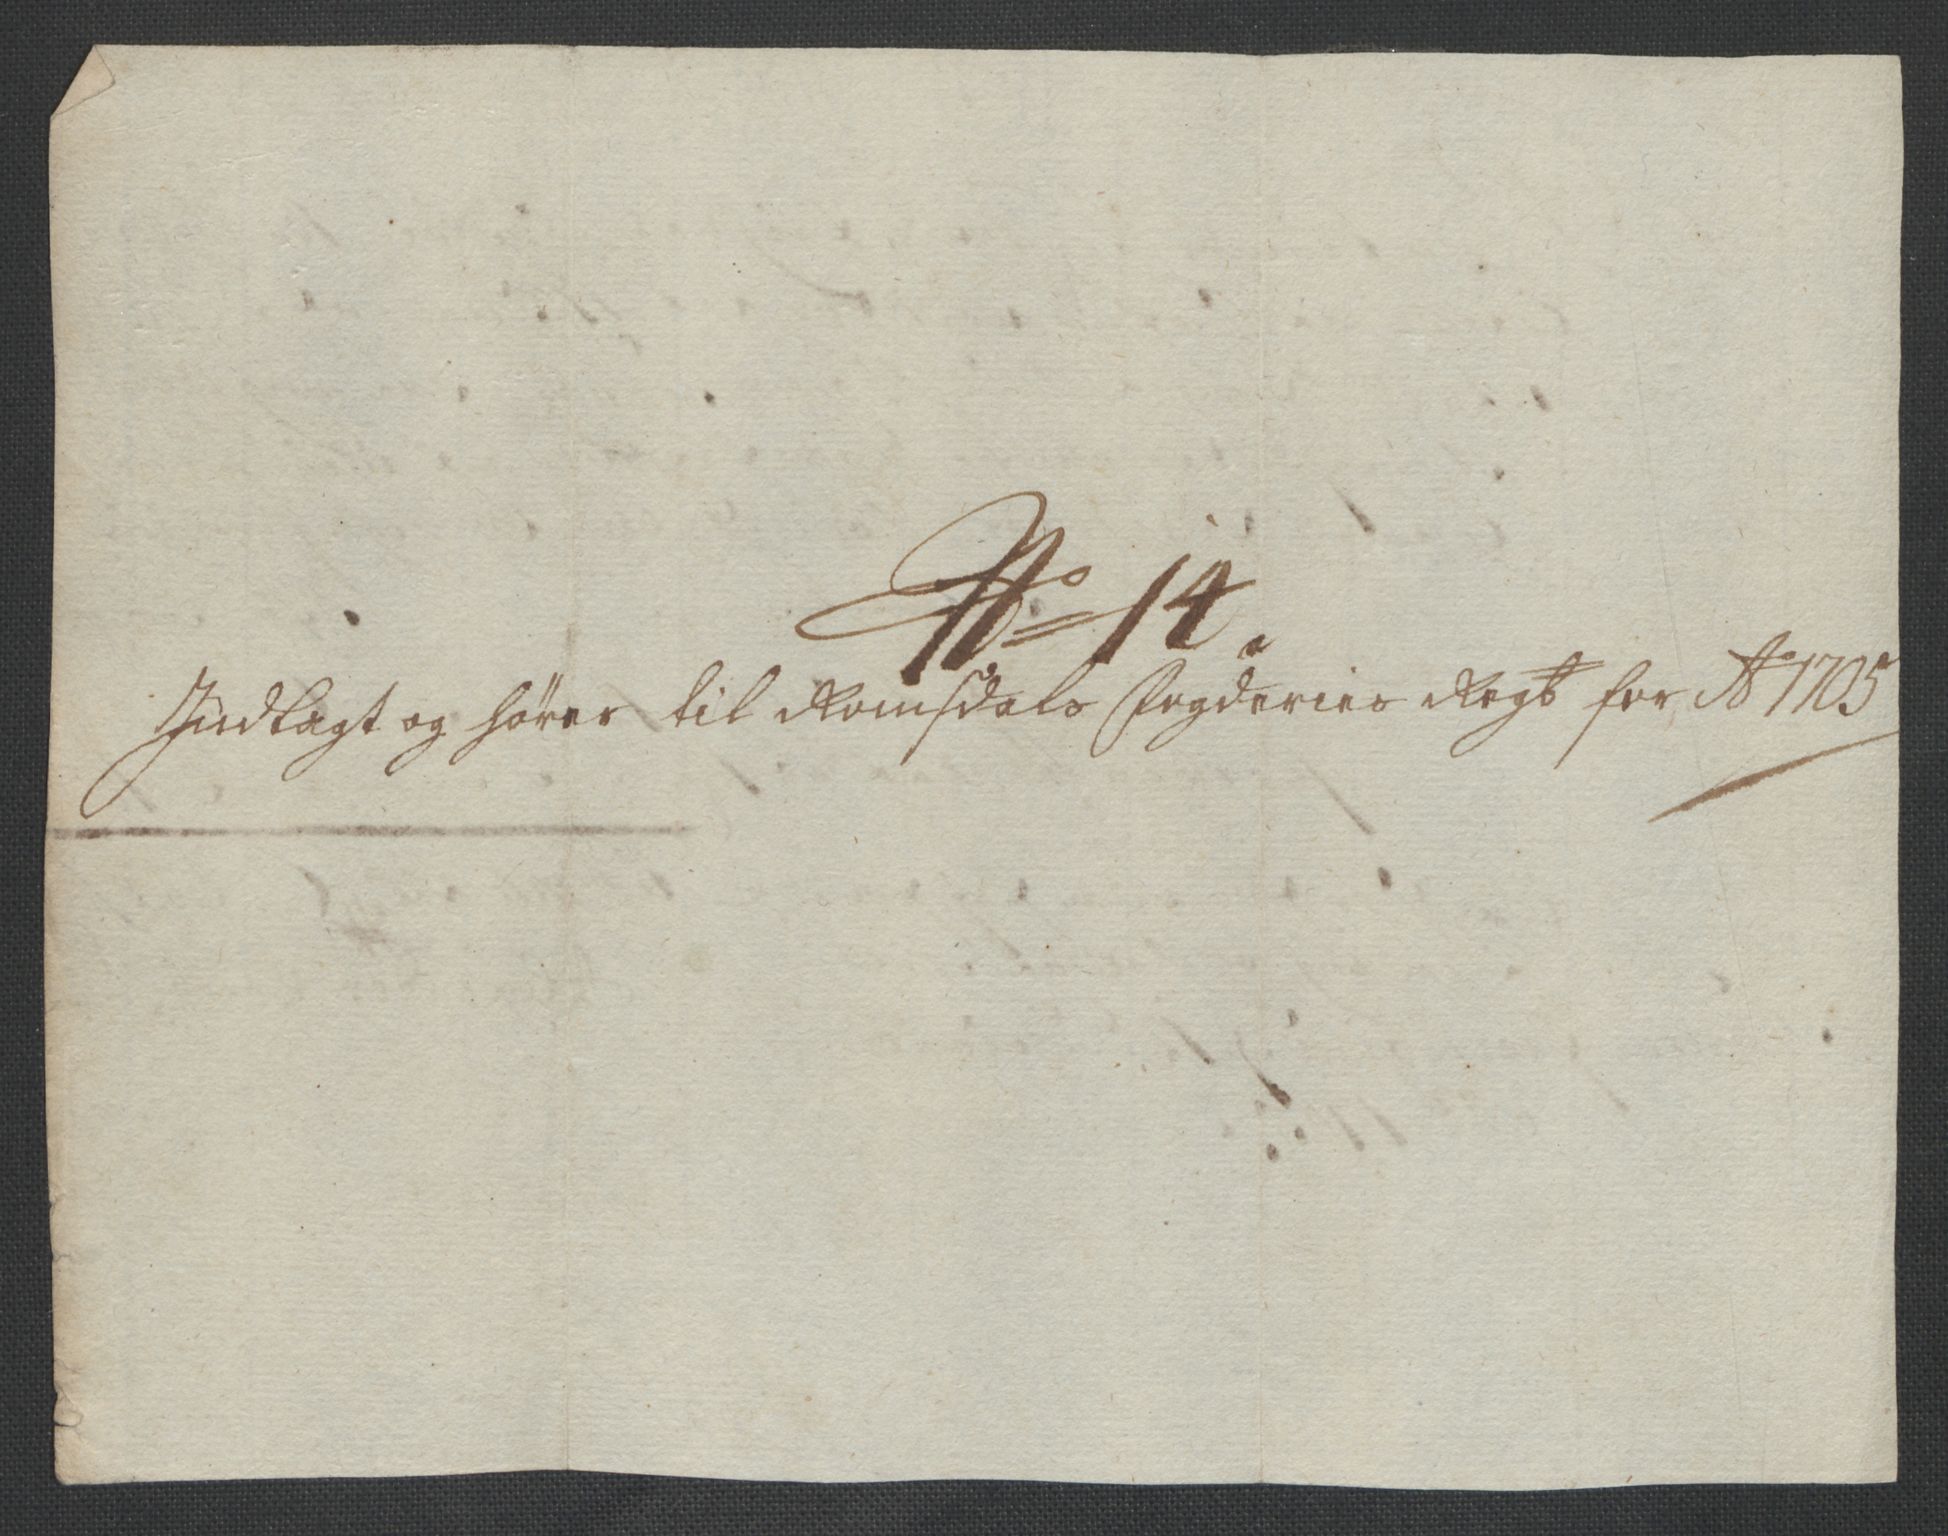 No 14.
Indlagt og hører til Romsdals Fogderies Regb for Ao 1705